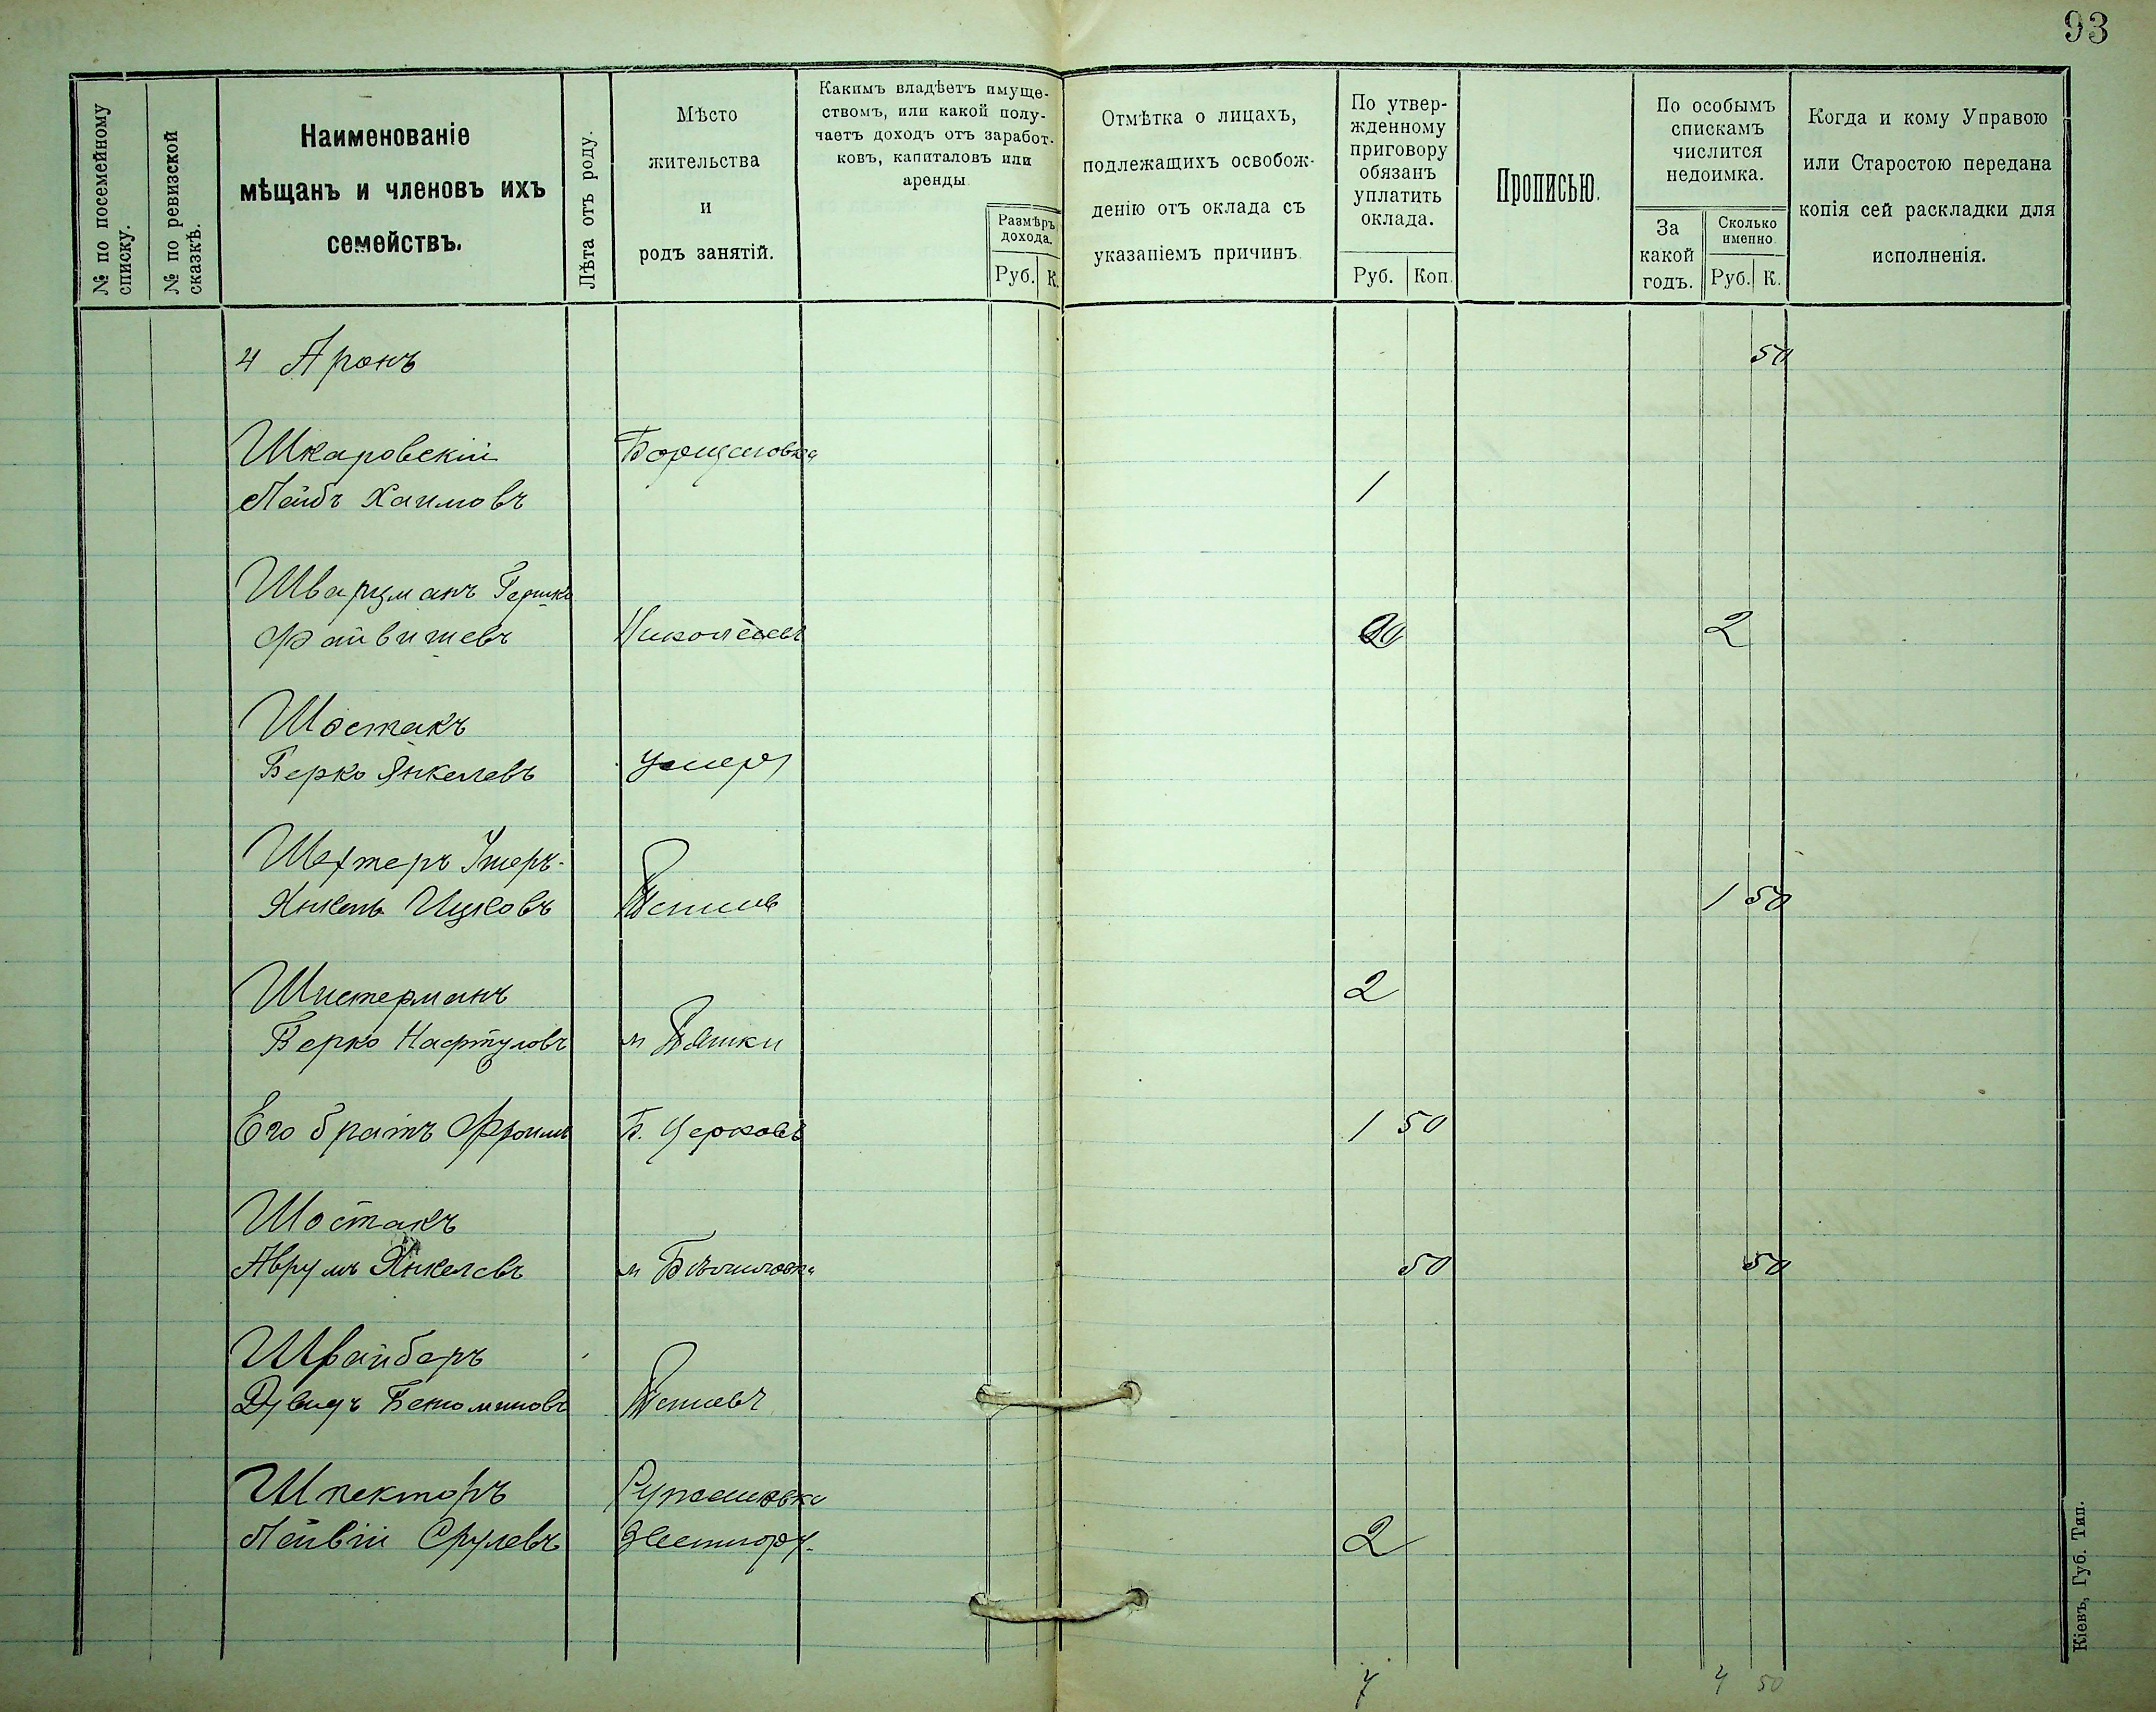 93
№ по посемейному
списку.
№ по ревизской
сказкѣ.
Наименованіе
мѣщанъ и членовъ ихъ
семействъ.
Лѣта отъ роду.
Мѣсто
жительства
и
родъ занятій.
Какимъ владѣетъ имуще-
ствомъ, или какой полу-
чаетъ доходъ отъ заработ-
ковъ, капиталовъ или
аренды
Размѣръ
дохода.
Руб. К.
Отмѣтка о лицахъ,
подлежащихъ освобож-
денію отъ оклада съ
указаніемъ причинъ
По утвер-
жденному
приговору
обязанъ
уплатить
оклада.
Руб. Коп.
Прописью.
По особымъ
спискамъ
числится
недоимка.
За
какой
годъ.
Сколько
именно
Руб. К.
Когда и кому Управою
или Старостою передана
копія сей раскладки для
исполненія.
4 Аронъ 50
Шкаровскій Борщаговка
Лейбъ Хаимовъ 1
Шварцманъ Гершко
Файвишевъ Николаевъ 2
Шостакъ
Берко Янкелевъ умеръ
Шехтеръ Ушеръ-
Янкель Ицковъ 1 50
Шистерманъ 2
Берко Нафтуловъ м
Его братъ Фроимъ Б. Церковь 1 50
Шостакъ
Аврумъ Янкелевъ м 50 50
Швайберъ
Дувидъ Бенюминовъ
Шпекторъ
Лейвій Срулевъ 2
7 4 50
Кіевъ, Губ. Тип.